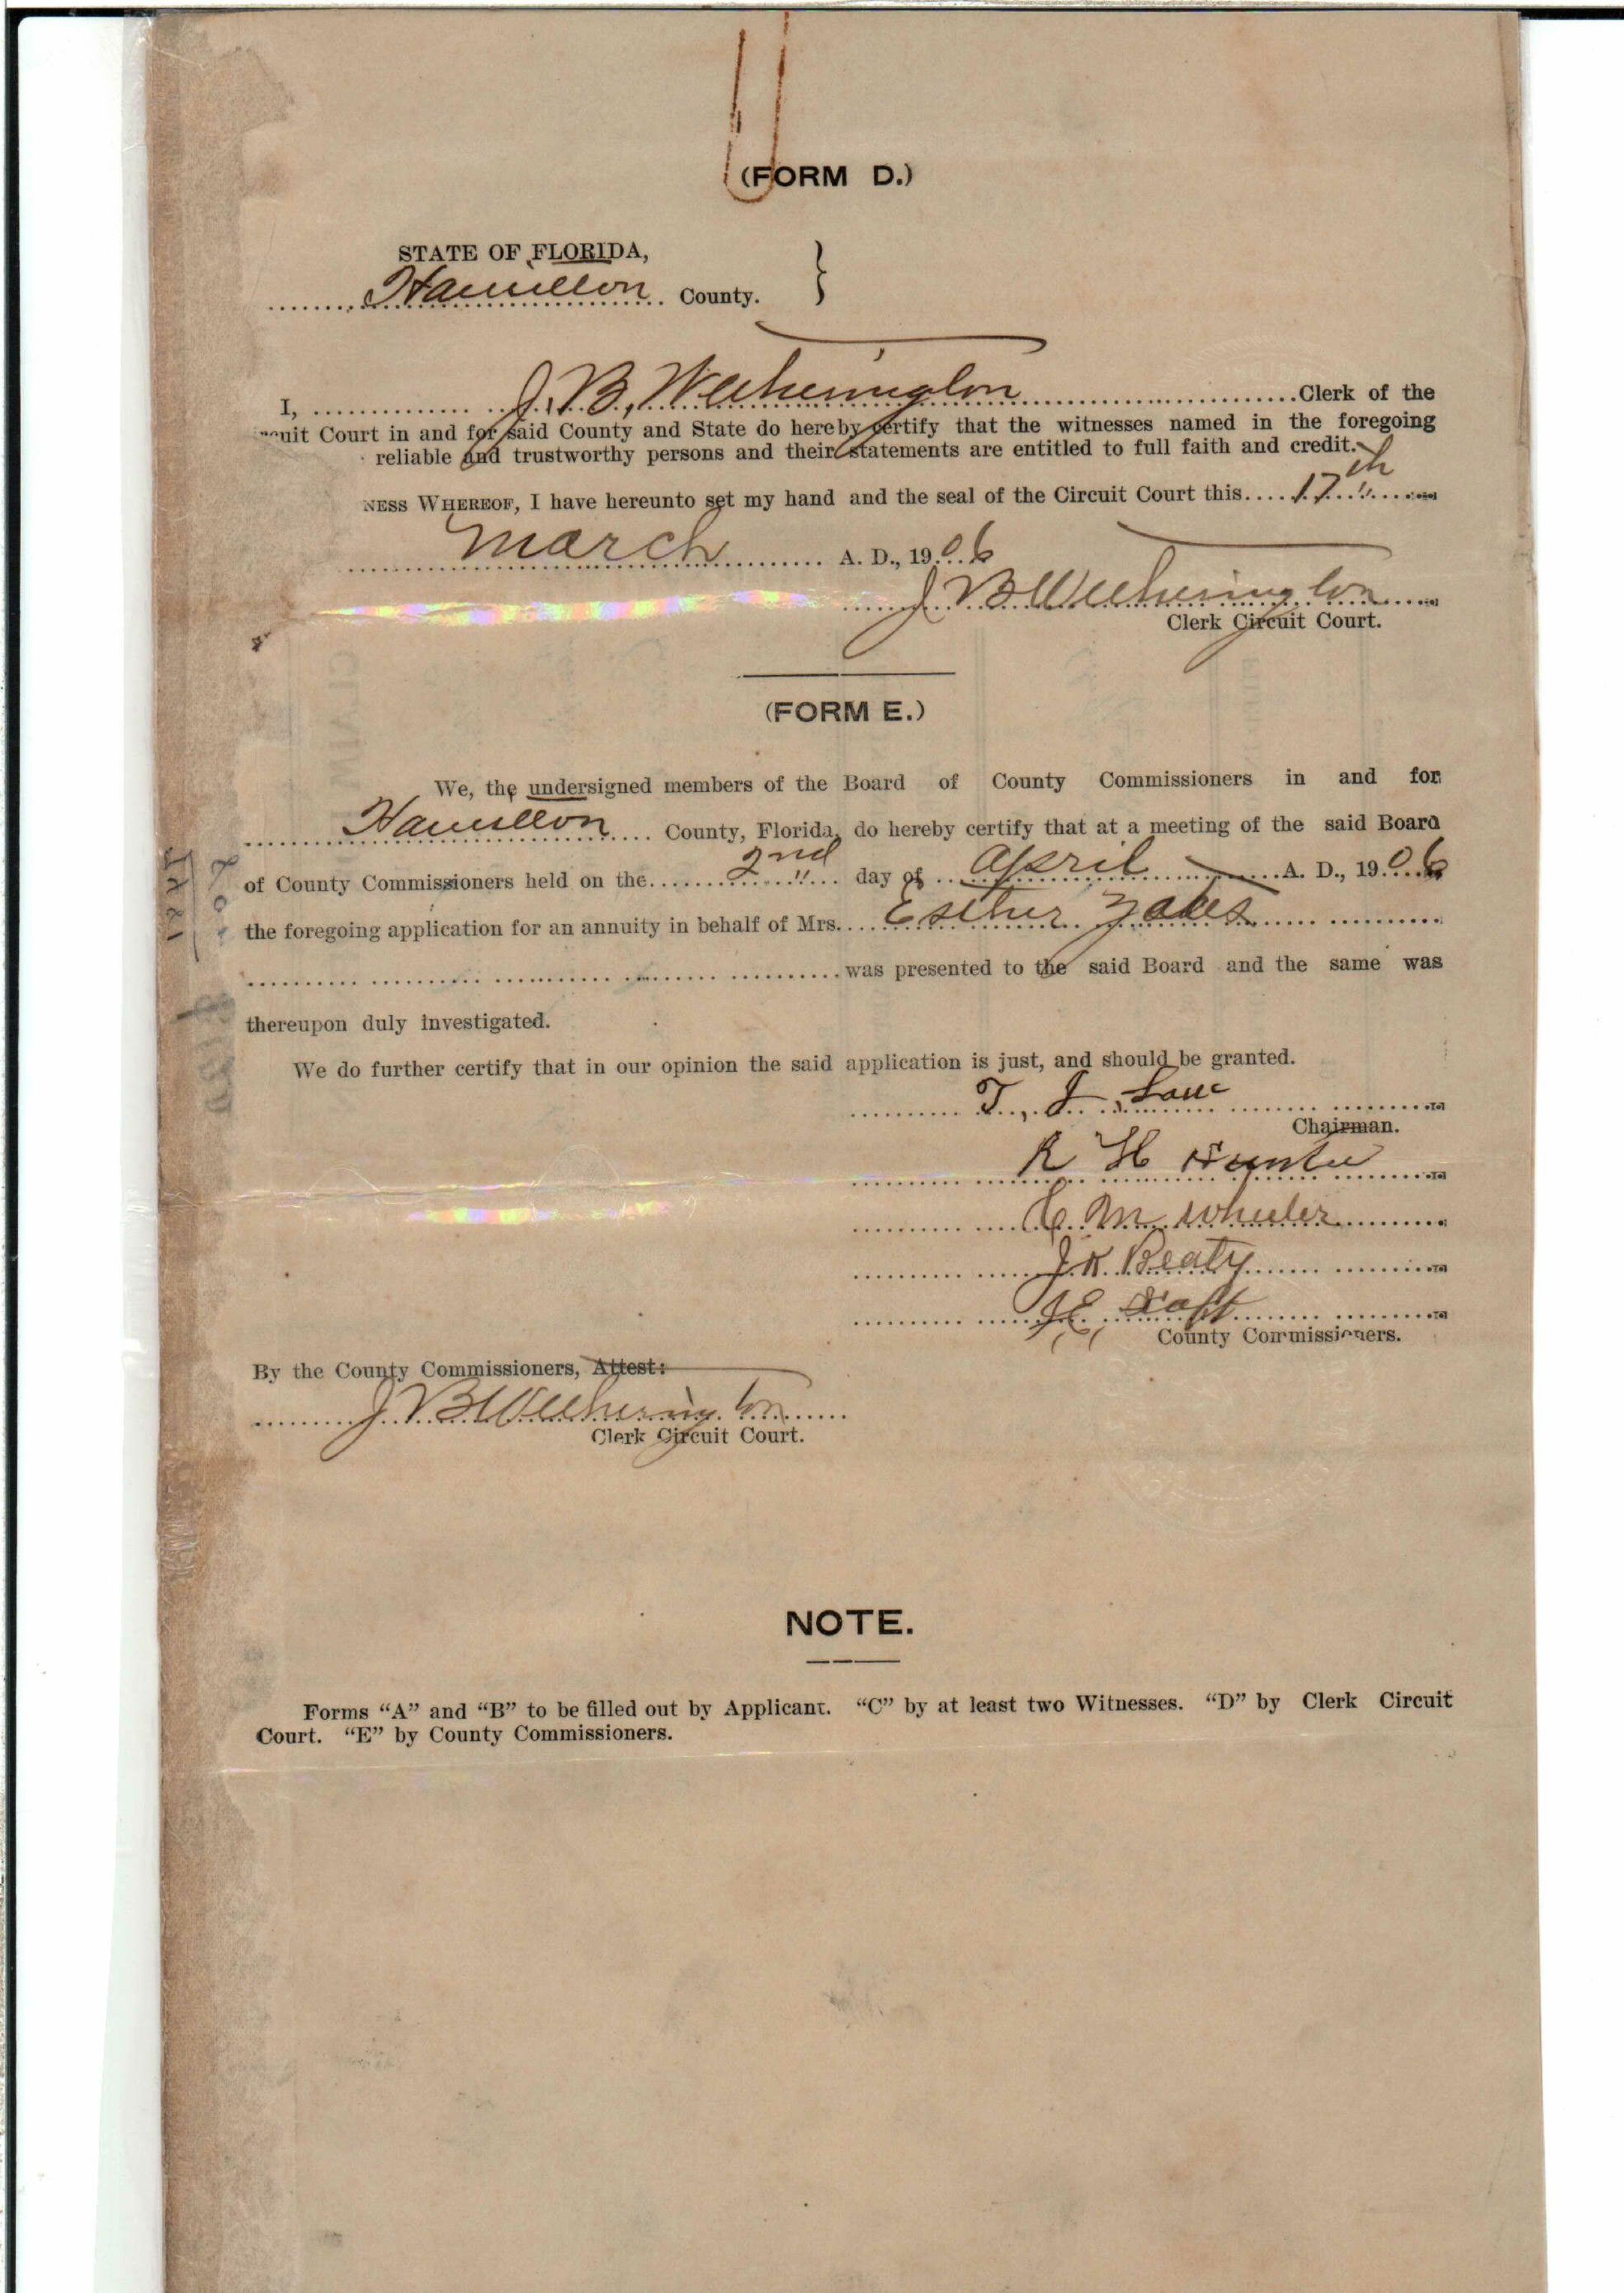 (FORM D.)
STATE OF FLORIDA, }
Hamilton County.
I, J. B. Wetherington Clerk of the
cuit Court in and for said County and State do hereby certify that the witnesses named in the foregoing
reliable and trustworthy persons and their statements are entitled to full faith and credit.
NESS WHEREOF, I have hereunto set my hand and the seal of the Circuit Court this 17th
March A. D., 1906
J B Wetherington
Clerk Circuit Court.
(FORM E.)
We, the undersigned members of the Board of County Commissioners in and for
Hamilton County, Florida, do hereby certify that at a meeting of the said Board
of County Commissioners held on the 2nd day of April A. D., 1906
the foregoing application for an annuity in behalf of Mrs. Esther Yates
was presented to the said Board and the same was
thereupon duly investigated.
We do further certify that in our opinion the said application is just, and should be granted.
T. J.
Chairman.
R H Hunter
C. M. Wheeler
J. R. Beaty
J. E.
County Commissioners.
By the County Commissioners, Attest:
J. B Wetherington
Clerk Circuit Court.
NOTE.
Forms “A” and “B” to be filled out by Applicant. “C” by at least two Witnesses. “D” by Clerk Circuit
Court. “E” by County Commissioners.